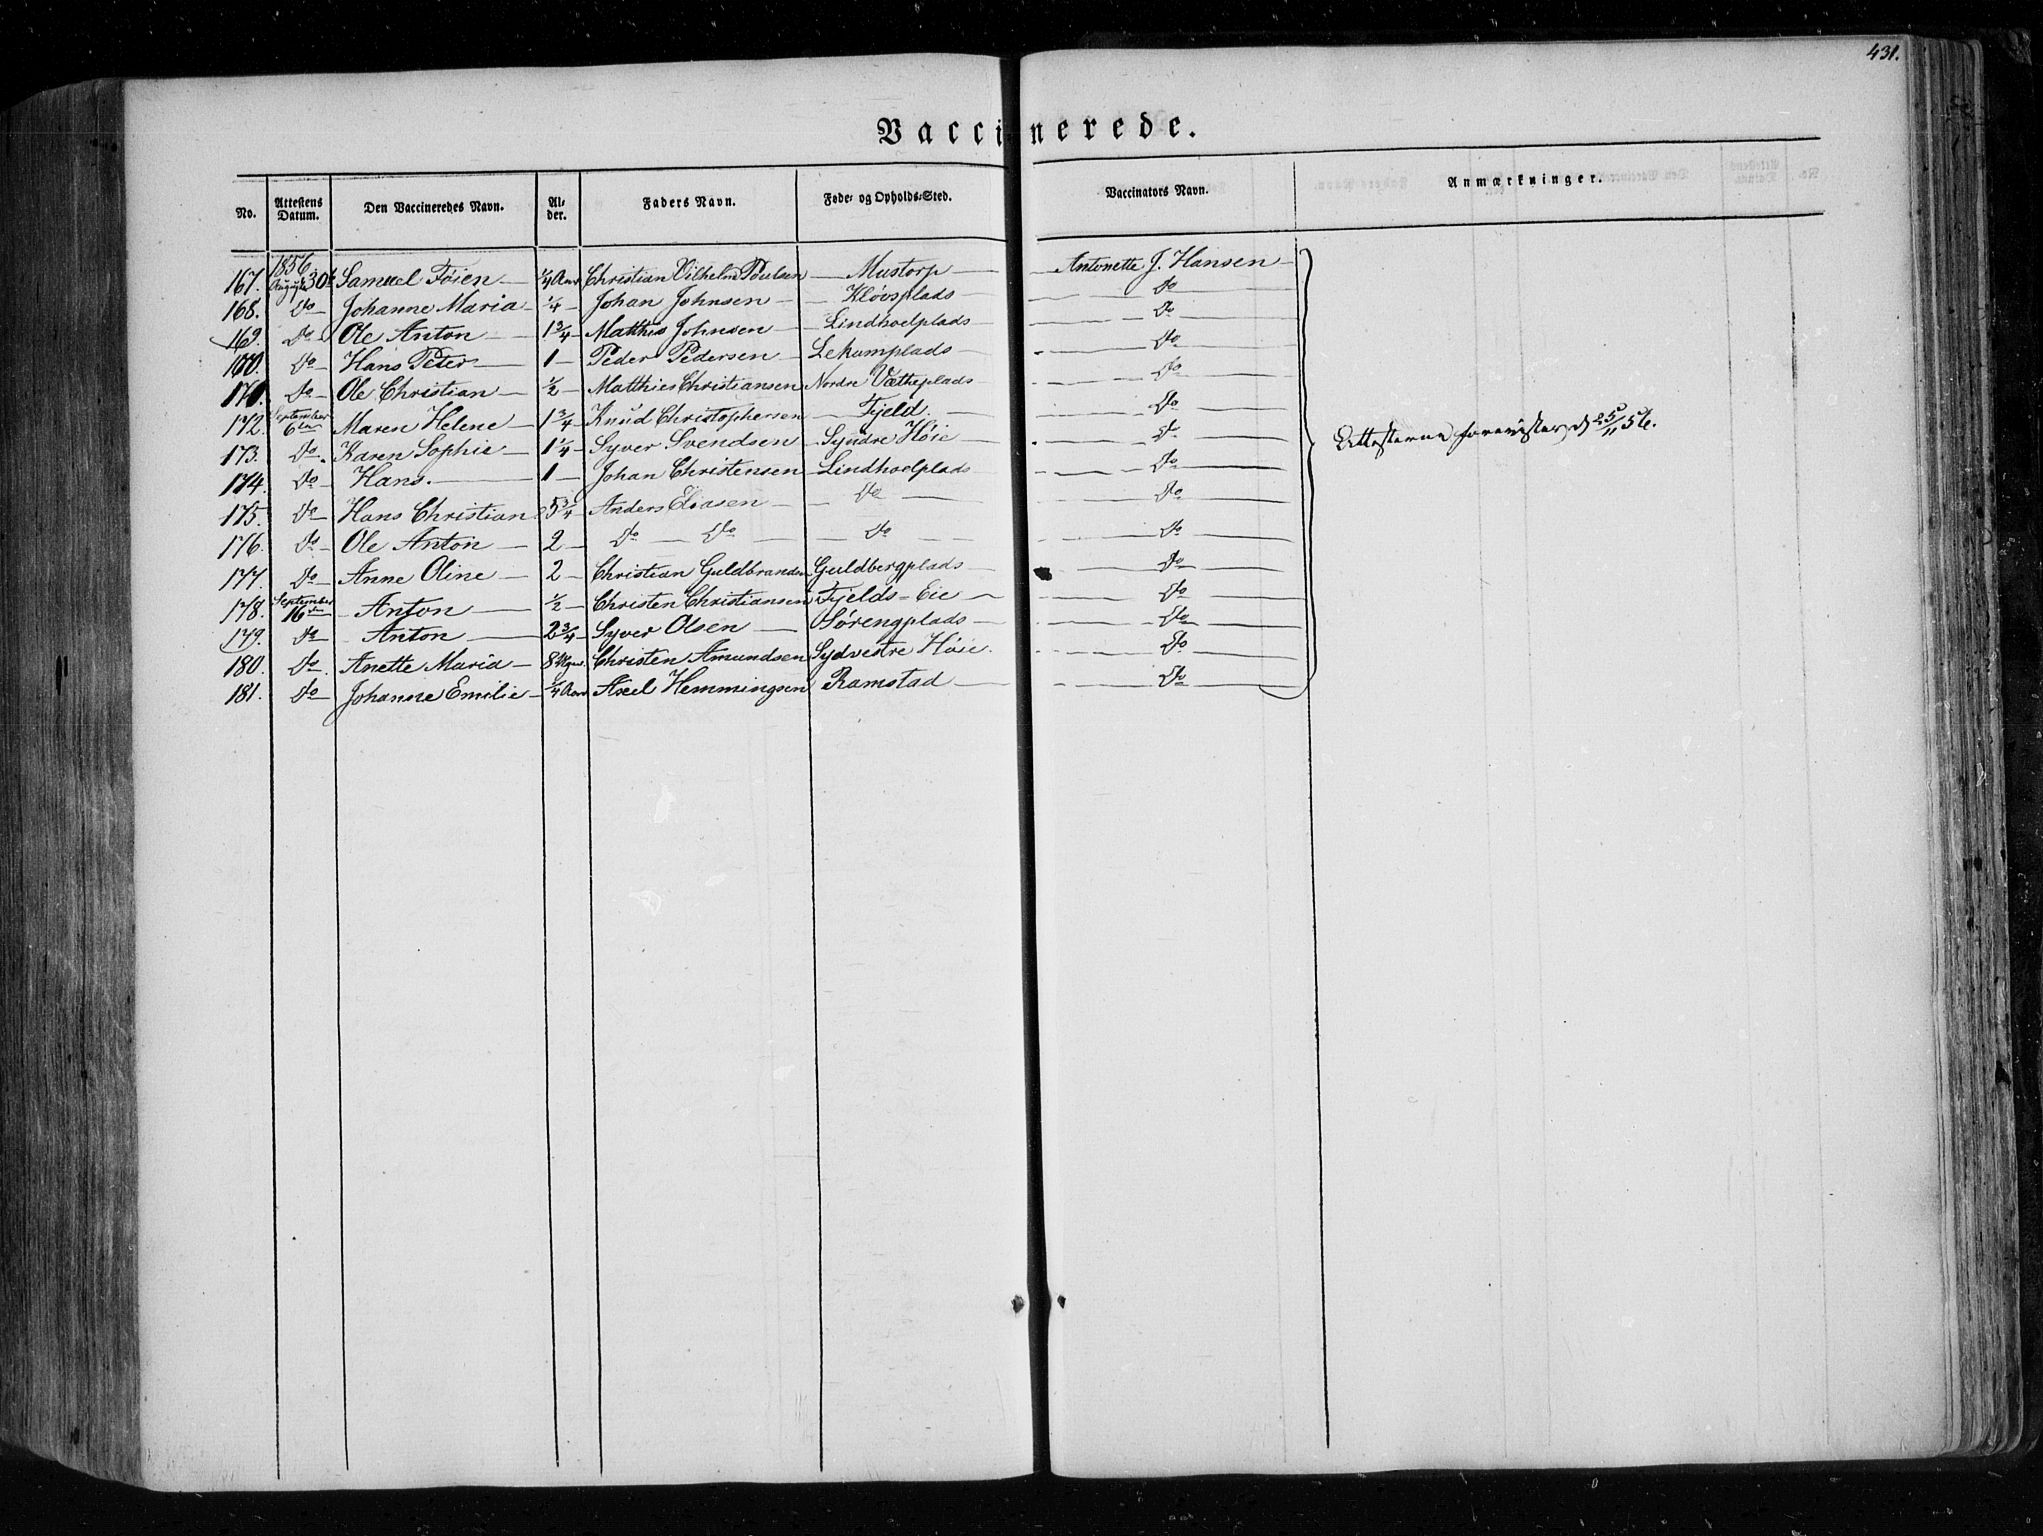 431.
Vaccinerede.
No. | Attestens Datum. | Den Vaccineredes Navn. | Alder. | Faders Navn. | Føde- og Opholds-Sted. | Vaccinators Navn. | Anmærkninger.
167. | 1856 August 30te | Samuel Töien | 1/4 Aar | Christian Vilhelm Poulsen | Mustorp | Antonette J. Hansen
168. | Do | Johanne Maria | 1/4 | Johan Johnsen | Klövsplads | Do
169. | Do | Ole Anton | 1 3/4 | Matthis Johnsen | Lindhoelplads | Do
170. | Do | Hans Peter | 1 | Peder Pedersen | Lekumplads | Do
171. | Do | Ole Christian | 1/2 | Matthies Christiansen | Nordre Vætheplads | Do
172. | September 6te | Maren Helene | 1 3/4 | Knud Christophersen | Fjeld. | Do
173. | Do | Karen Sophie | 1 1/4 | Syver Svendsen | Syndre Höie | Do | Attesterne foreviste d 25/11 56.
174. | Do | Hans. | 1 | Johan Christensen | Lindhoelplads | Do
175. | Do | Hans Christian | 5 3/4 | Anders Eliasen | Do | Do
176. | Do | Ole Anton | 2 | Do Do | Do | Do
177. | Do | Anne Oline | 2 | Christian Guldbrandsen | Guldbergplads | Do
178. | September 16de | Anton | 1/2 | Christen Christiansen | Fjelds-Eie | Do
179. | Do | Anton | 2 3/4 | Syver Olsen | Sörengplads | Do
180. | Do | Anette Maria | 8 Uger | Christen Amundsen | Sydvestre Höie. | Do
181. | Do | Johanne Emilie | 1/4 Aar | Axel Hemmingsen | Ramstad | Do